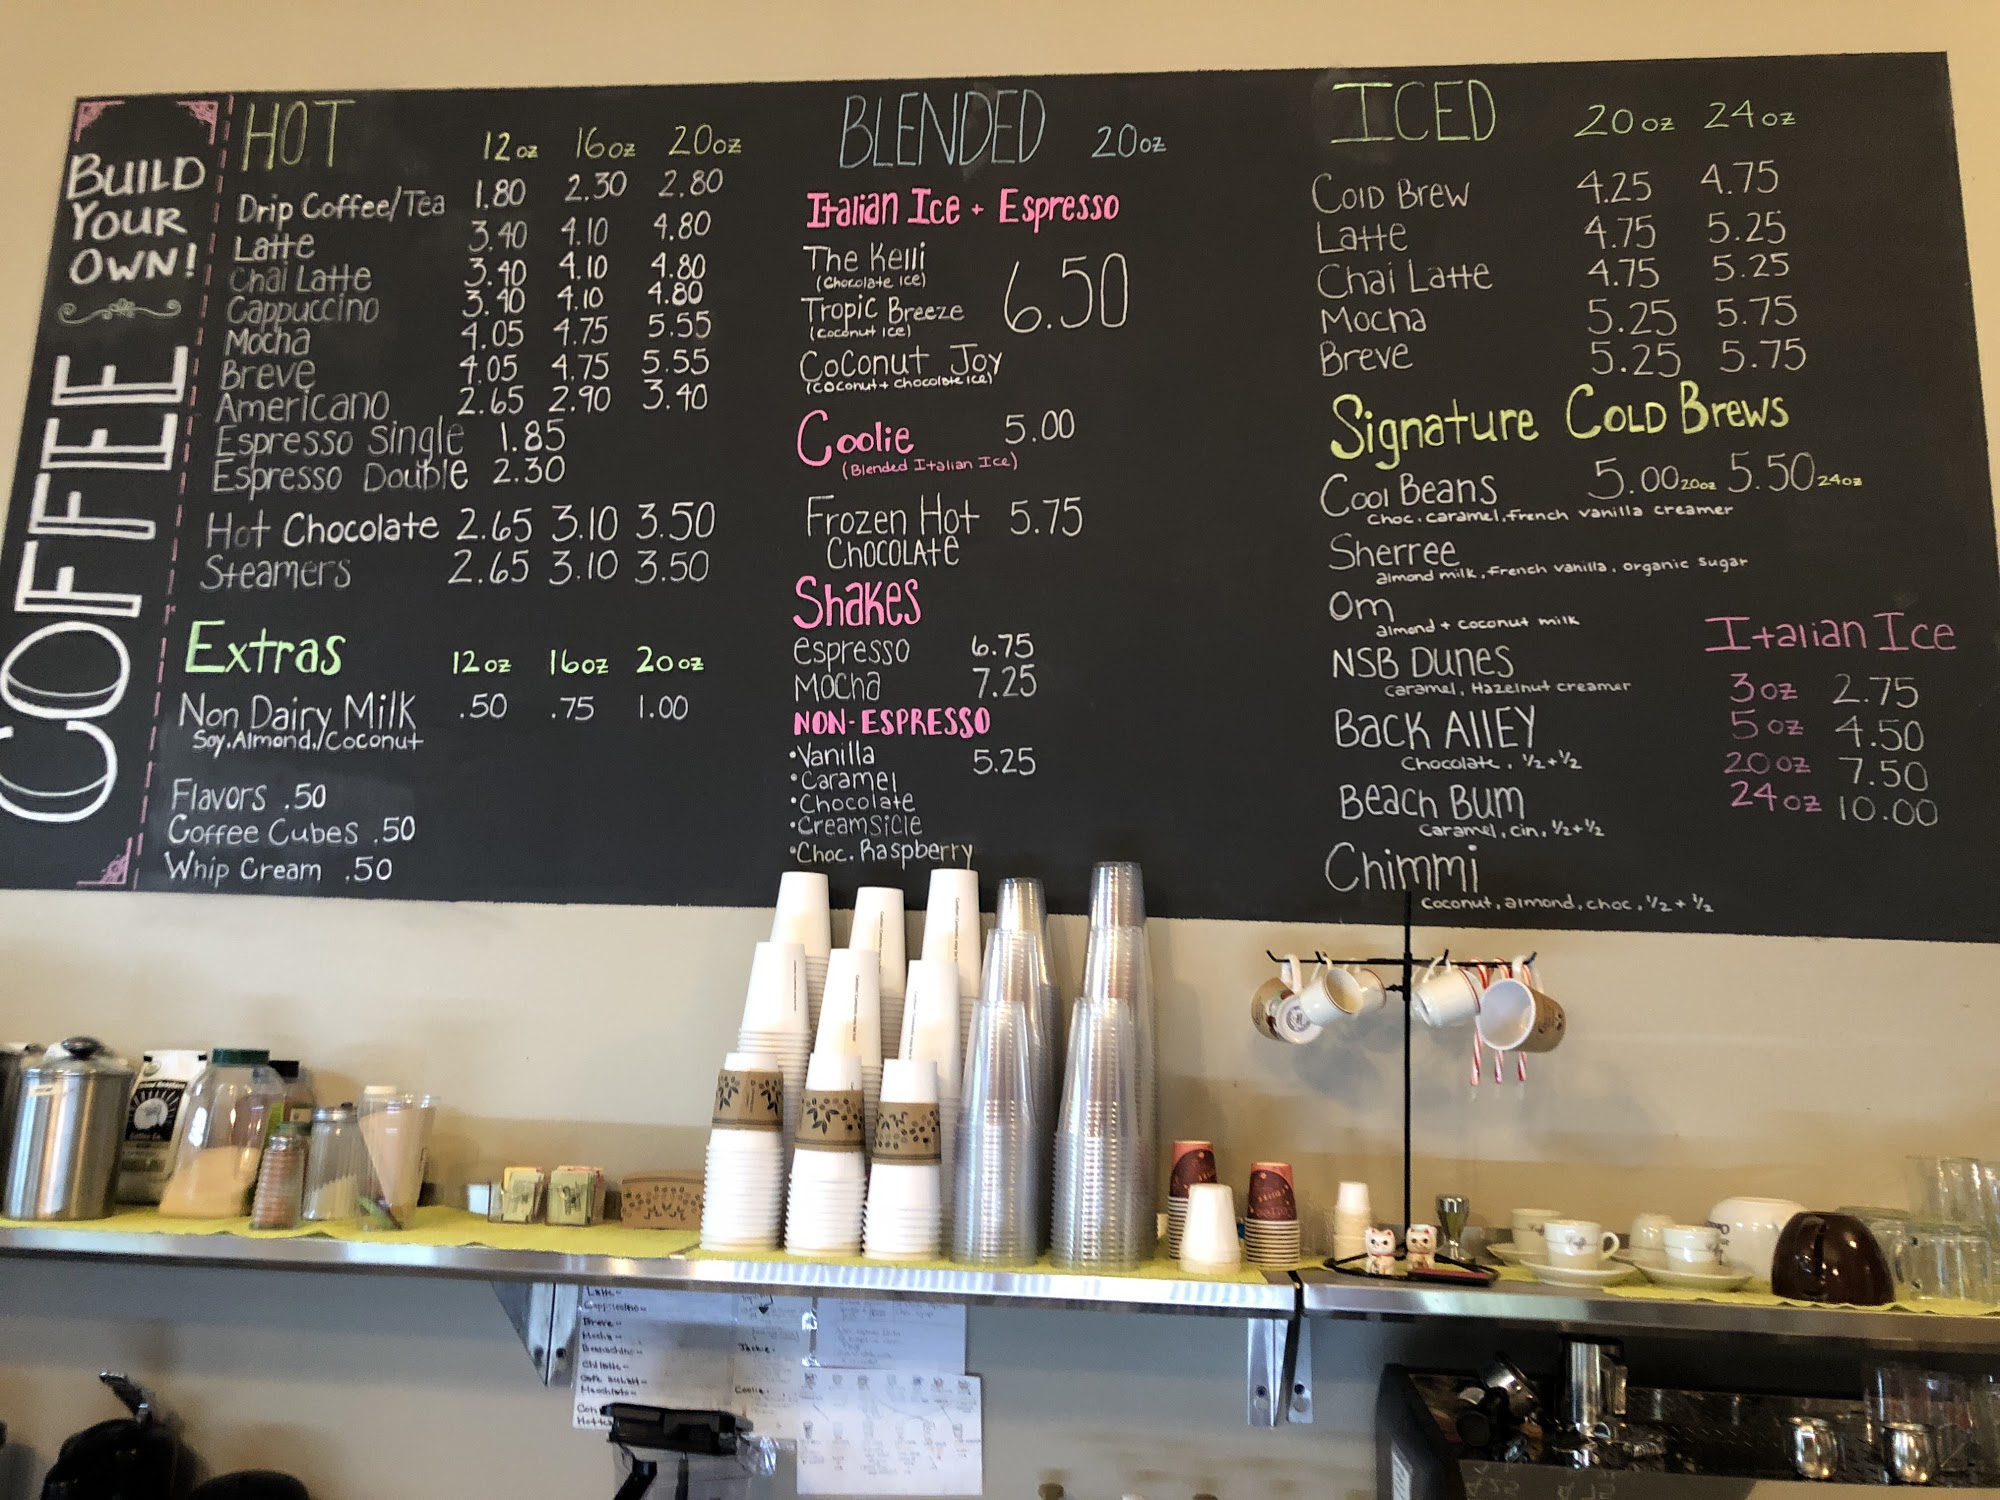 BUILD
YOUR
OWN!
COFFEE
HOT 12oz 16oz 20oz
Drip Coffee/Tea 1.80 2.30 2.80
Latte 3.40 4.10 4.80
Chai Latte 3.40 4.10 4.80
Cappuccino 3.40 4.10 4.80
Mocha 4.05 4.75 5.55
Breve 4.05 4.75 5.55
Americano 2.65 2.90 3.40
Espresso Single 1.85
Espresso Double 2.30
Hot Chocolate 2.65 3.10 3.50
Steamers 2.65 3.10 3.50
Extras 12oz 16oz 20oz
Non Dairy Milk .50 .75 1.00
Soy.Almond./Coconut
Flavors .50
Coffee Cubes .50
Whip Cream .50
BLENDED 20oz
Italian Ice + Espresso
The Kelli
(Chocolate Ice)
6.50
Tropic Breeze
(Coconut Ice)
Coconut Joy
(Coconut + Chocolate Ice)
Coolie 5.00
(Blended Italian Ice)
Frozen Hot 5.75
Chocolate
Shakes
espresso 6.75
Mocha 7.25
NON-ESPRESSO
•Vanilla 5.25
•Caramel
•Chocolate
•Creamsicle
•Choc. Raspberry
ICED 20oz 24oz
Cold Brew 4.25 4.75
Latte 4.75 5.25
Chai Latte 4.75 5.25
Mocha 5.25 5.75
Breve 5.25 5.75
Signature Cold Brews
Cool Beans 5.00 20oz 5.50 24oz
Choc. caramel, French vanilla creamer
Sherree
almond milk, French vanilla, organic sugar
Om
almond + coconut milk
NSB Dunes
Caramel, Hazelnut creamer
Back Alley
Chocolate, ½+½
Beach Bum
Caramel, cin, ½+½
Chimmi
Coconut, almond, choc, ½+½
Italian Ice
3oz 2.75
5oz 4.50
20oz 7.50
24oz 10.00
Latte-
Cappuccino-
Breve-
Mocha-